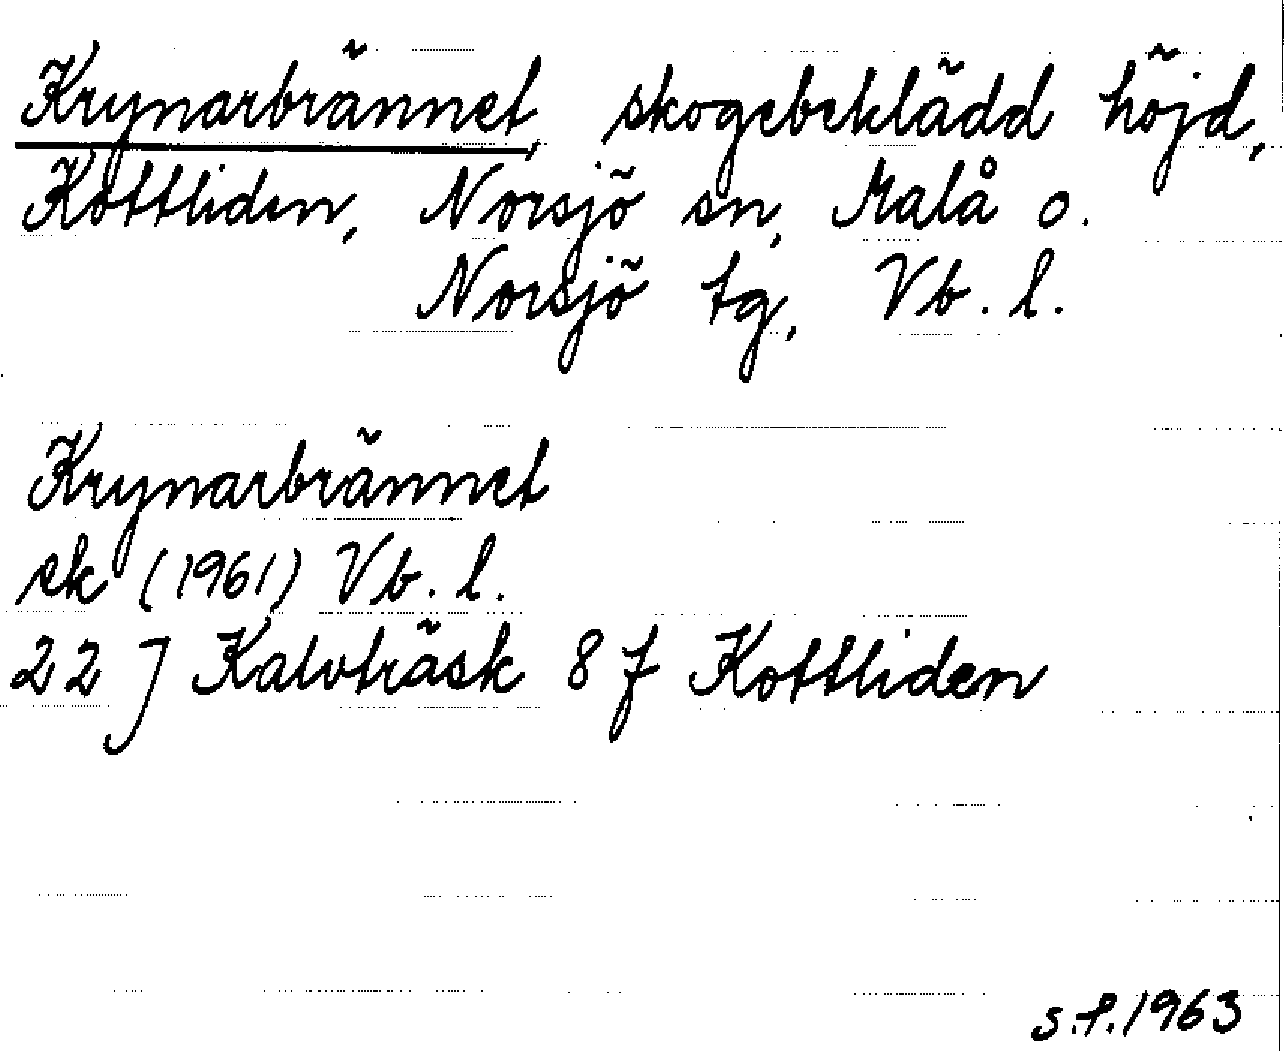 Krynarbrännet, skogsbeklädd höjd,
Kottliden, Norsjö sn, Malå o.
Norsjö tg, Vb. l.
Krynarbrännet
ek (1961) Vb. l.
22 J Kalvträsk 8 f Kottliden
s.f. 1963